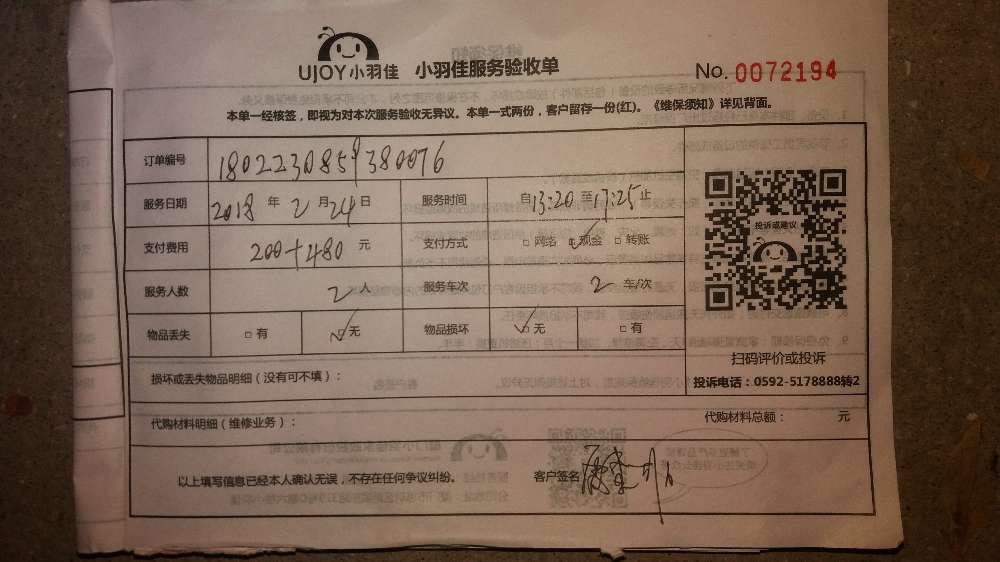 UJOY小羽佳 小羽佳服务验收单 No. 0072194
本单一经核签，即视为对本次服务验收无异议。本单一式两份，客户留存一份(红)。《维保须知》详见背面。
订单编号 1802230859380076
服务日期 2018 年 2 月 24 日 服务时间 自 13:20 至 17:25 止
支付费用 200+480 元 支付方式 □ 网络 ☑ 现金 □ 转账
服务人数 2 人 服务车次 2 车/次
物品丢失 □ 有 ☑ 无 物品损坏 ☑ 无 □ 有
投诉或建议
扫码评价或投诉
投诉电话：0592-5178888转2
损坏或丢失物品明细（没有可不填）：
代购材料明细（维修业务）： 代购材料总额： 元
以上填写信息已经本人确认无误，不存在任何争议纠纷。 客户签名